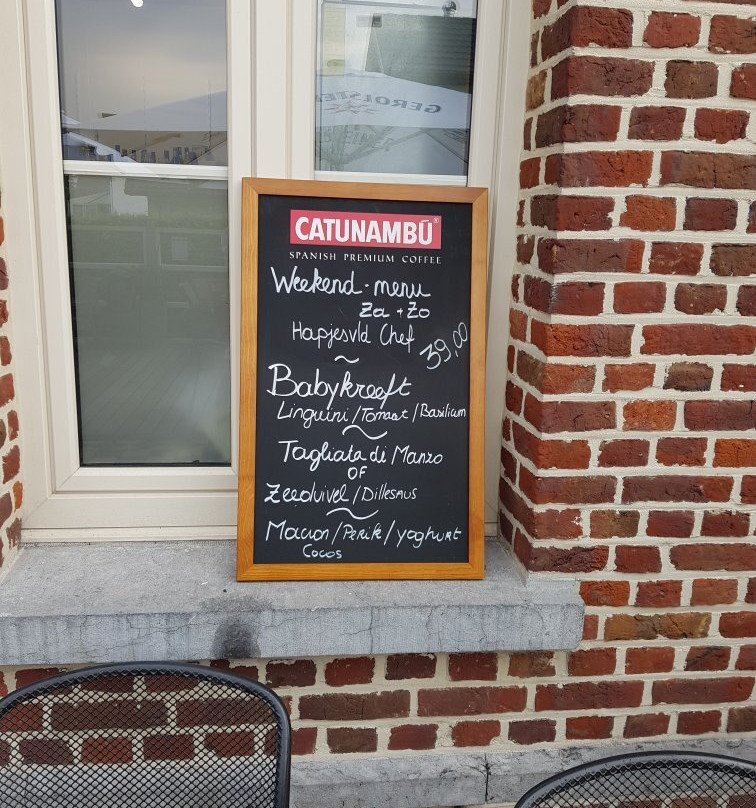 GEROLSTE
CATUNAMBÚ®
SPANISH PREMIUM COFFEE
Weekend-menu
Za + Zo
Hapjesvld Chef 39,00
~
Babykreeft
Linguini/Tomaat/Basilicum
~
Tagliata di Manzo
OF
Zeeduivel/Dillesaus
~
/Perzik/yoghurt
Cocos